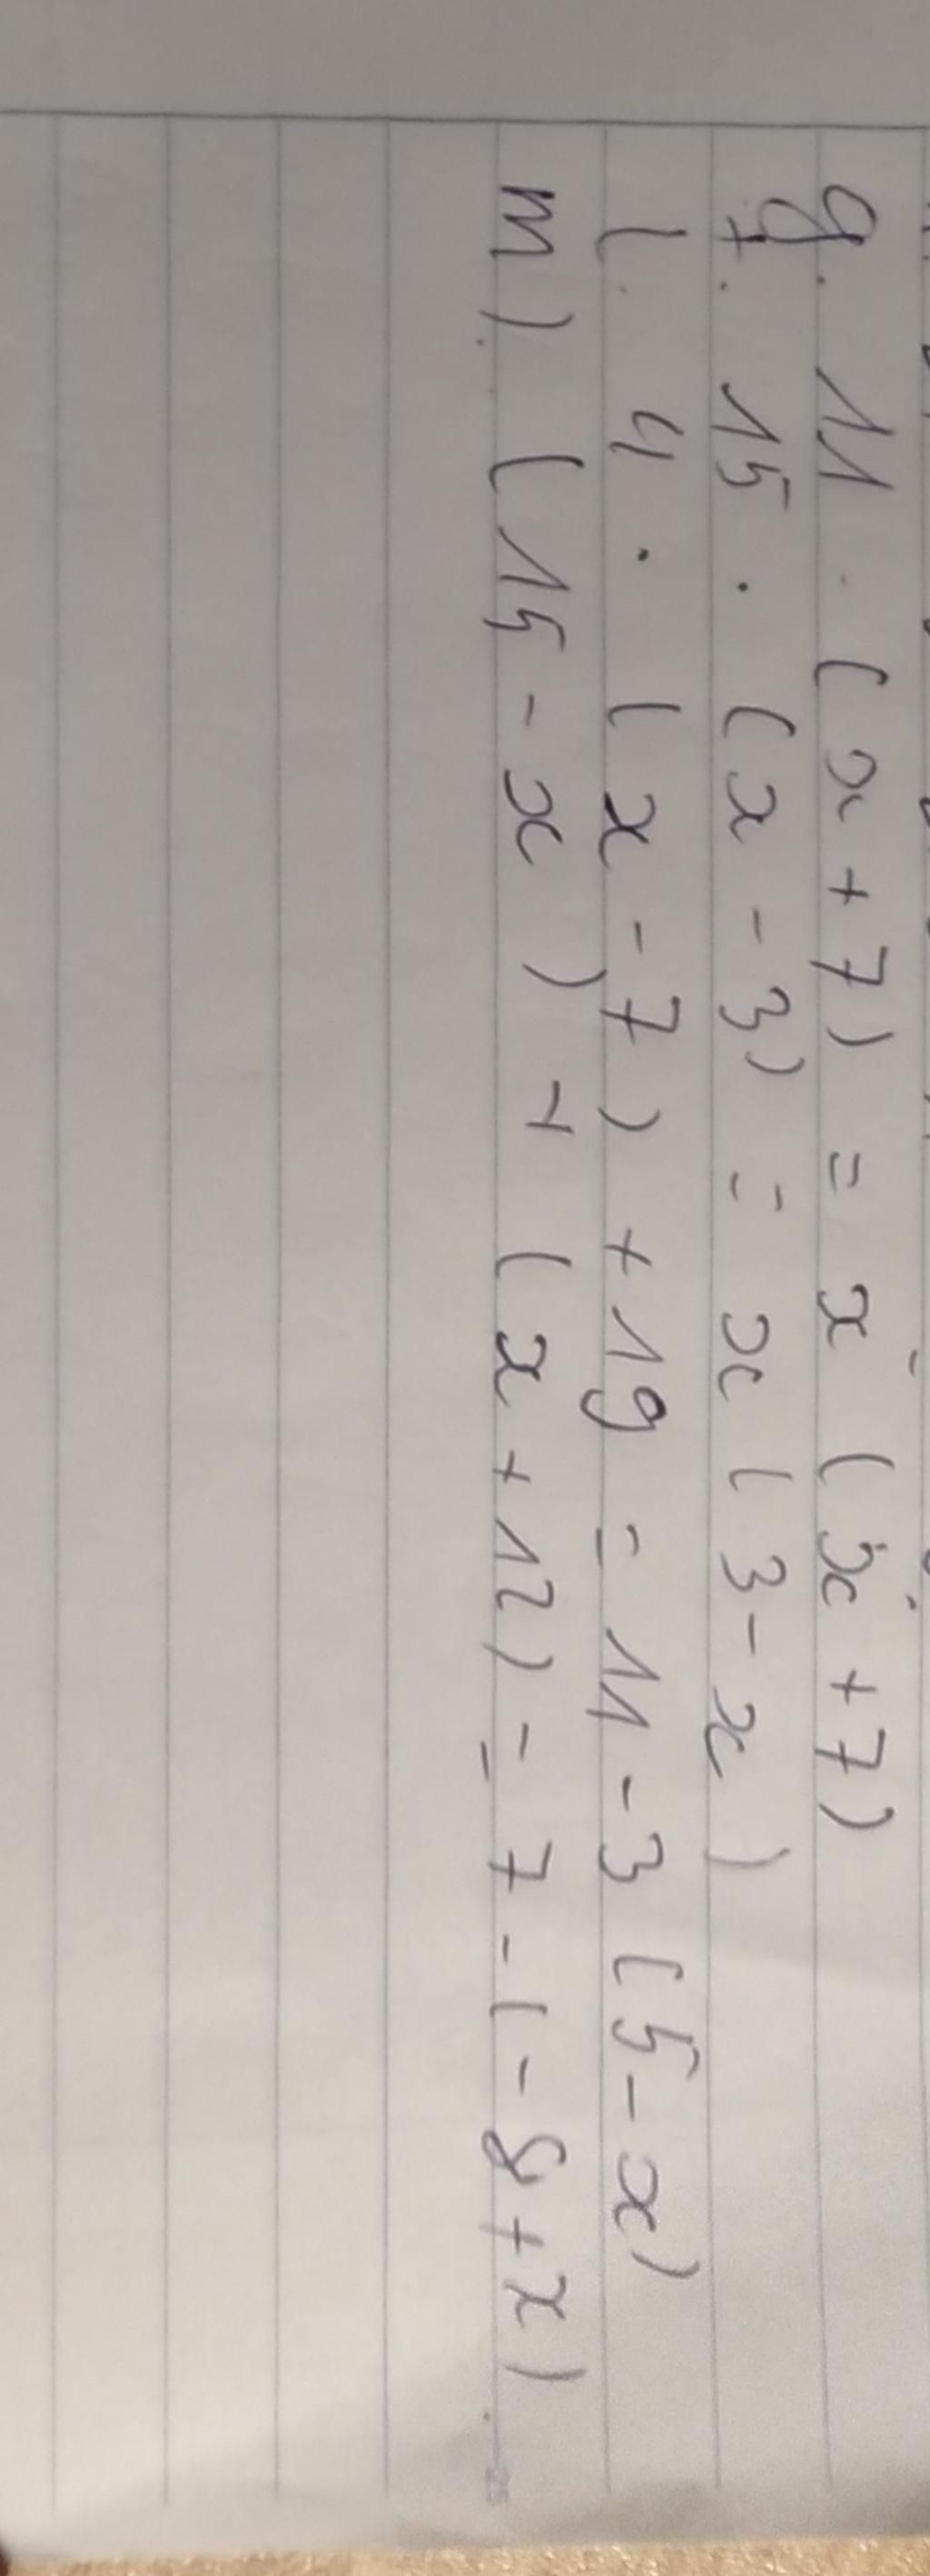 g. 11 · (x + 7) = x (x + 7)
f. 15 · (x - 3) = x (3 - x)
l. 4 · (x - 7) + 19 = 11 - 3 (5 - x)
m) (15 - x) - (x + 12) = 7 - (- 8 + x)